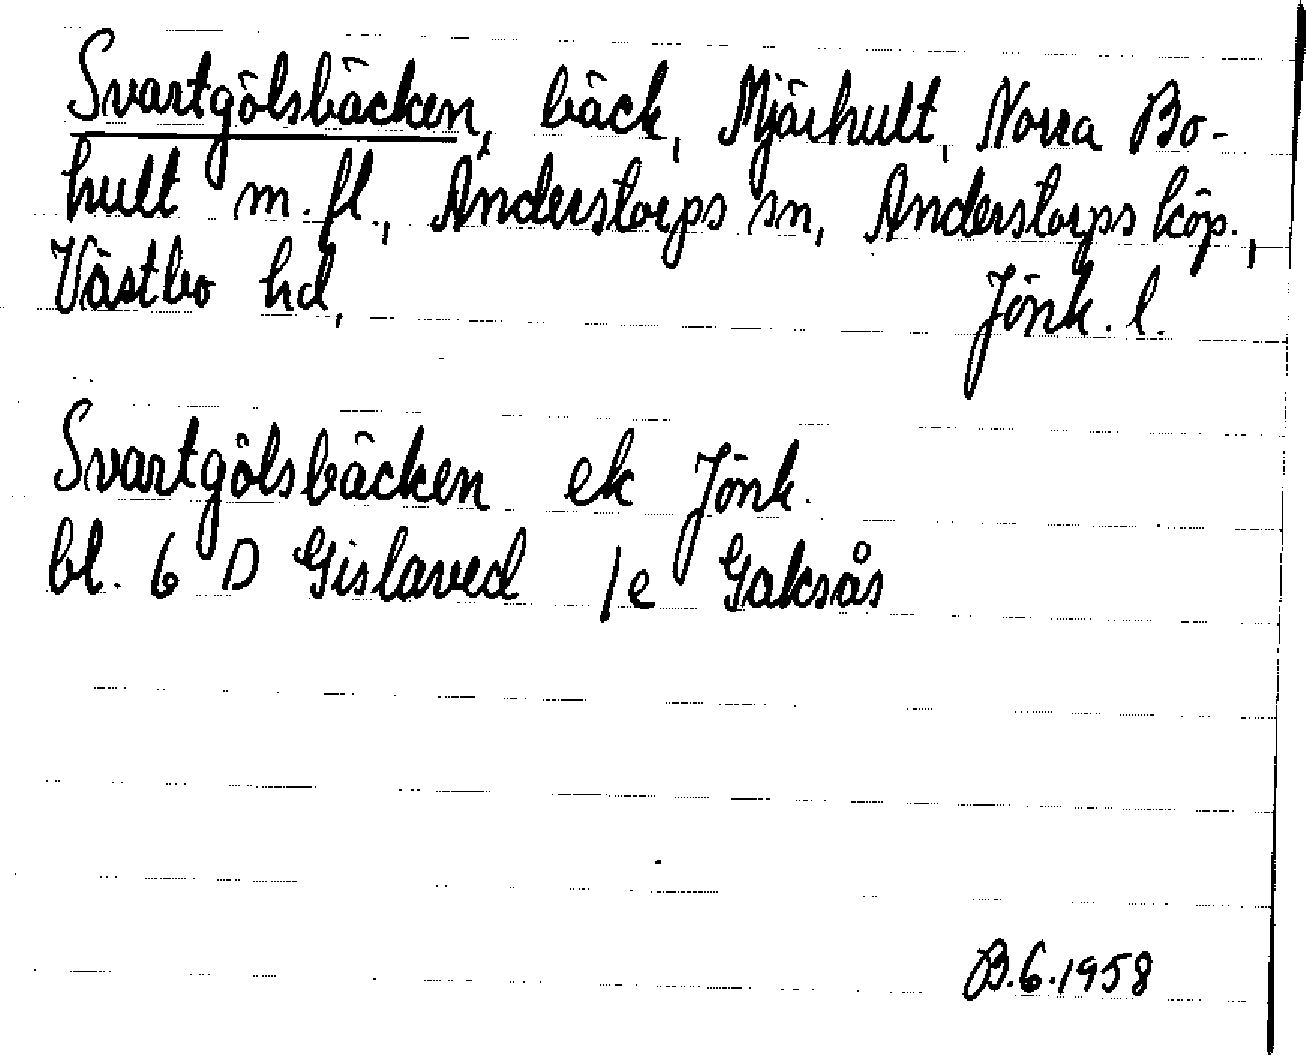 Svartgölsbäcken, bäck, Mjärhult, Norra Bo-
hult m.fl., Anderstorps sn, Anderstorps köp.,
Västbo hd, Jönk. l.
Svartgölsbäcken ek Jönk.
bl. 6 D Gislaved 1e Gaksås
B.6.1958